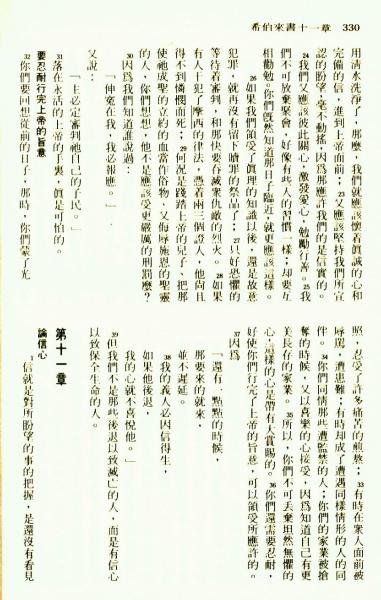 希伯來書十一章 330
用清水洗淨了，那麼，我們就應該懷着眞誠的心和
完備的信，進到上帝面前；23又應該堅持我們所宣
認的盼望，毫不動搖，因爲那應許我們的是信實的。
24我們又應該彼此關心，激發愛心，勉勵行善。25我
們不可放棄聚會，好像有些人的習慣一樣；却要互
相勸勉。你們旣然知道那日子臨近，就更應該這樣。
26如果我們領受了眞理的知識以後，還是故意
犯罪，就再沒有留下贖罪的祭品了；27只好恐懼的
等待着審判，和那快要吞滅衆仇敵的烈火。28如果
有人干犯了摩西的律法，憑着兩三個證人，他尚且
得不到憐憫而死；29何況是踐踏上帝的兒子、把那
使他成聖的立約的血當作俗物、又侮辱施恩的聖靈
的人，你們想想，他不是應該受更嚴厲的刑罰麼？
30因爲我們知道誰說過：
「伸寃在我，我必報應。」
又說：
「主必定審判祂自己的子民。」
31落在永活的上帝的手裏，眞是可怕的。
要忍耐行完上帝的旨意
32你們要回想從前的日子，那時，你們蒙了光
照，忍受了許多痛苦的煎熬；33有時在衆人面前被
辱罵，遭患難；有時却成了遭遇同樣情形的人的同
伴。34你們同情那些遭監禁的人；你們的家業被搶
奪的時候，又以喜樂的心接受，因爲知道自己有更
美長存的家業。35所以，你們不可丟棄坦然無懼的
心，這樣的心是帶有大賞賜的。36你們還需要忍耐，
好使你們行完了上帝的旨意，可以領受所應許的。
37因爲
「還有一點點的時候，
那要來的就來，
並不遲延。
38我的義人必因信得生，
如果他後退，
我的心就不喜悅他。」
39但我們不是那些後退以致滅亡的人，而是有信心
以致保全生命的人。
第十一章
論信心
1信就是對所盼望的事的把握，是還沒有看見